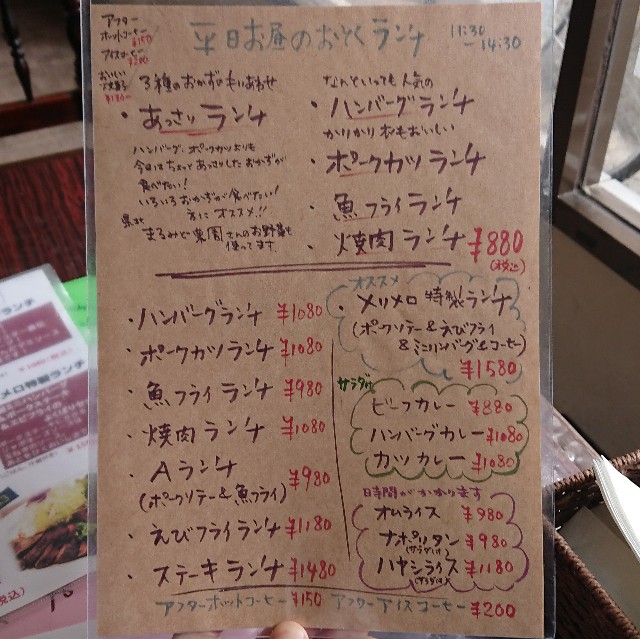 アフター
ホットコーヒー
¥150
アイスコーヒー
¥200
おいしい
¥130〜
平日お昼のおとくランチ
11:30
－14:30
3種のおかずのもりあわせ
・あっさりランチ
ハンバーグ、ポークカツよりも
今日はちょっとあっさりしたおかずが
食べたい!
いろいろおかずが食べたい!
方にオススメ!!
まるみど菜園さんのお野菜も
使ってます
なんといっても人気の
・ハンバーグランチ
かりかり衣もおいしい
・ポークカツランチ
・魚フライランチ
・焼肉ランチ ¥880
(税込)
・ハンバーグランチ ¥1080
・ポークカツランチ ¥1080
・魚フライランチ ¥980
・焼肉ランチ ¥1080
・Aランチ ¥980
(ポークソテー&魚フライ)
・えびフライランチ ¥1180
・ステーキランチ ¥1480
オススメ
・メリメロ特製ランチ
(ポークソテー&えびフライ
&ミニハンバーグ&コーヒー)
¥1580
サラダ付
ビーフカレー ¥880
ハンバーグカレー ¥1080
カツカレー ¥1080
時間がかかります
オムライス ¥980
ナポリタン ¥980
(サラダ付)
ハヤシライス ¥1180
(サラダ付)
アフターホットコーヒー ¥150 アフターアイスコーヒー ¥200
ランチ
メロ特製ランチ
税込)